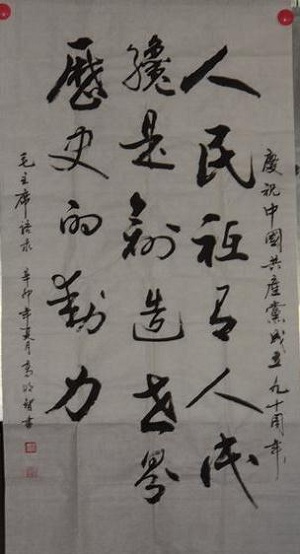 慶祝中國共產黨成立九十周年
人民祇有人民
纔是創造世界
歷史的動力
毛主席語录 辛卯年夏月